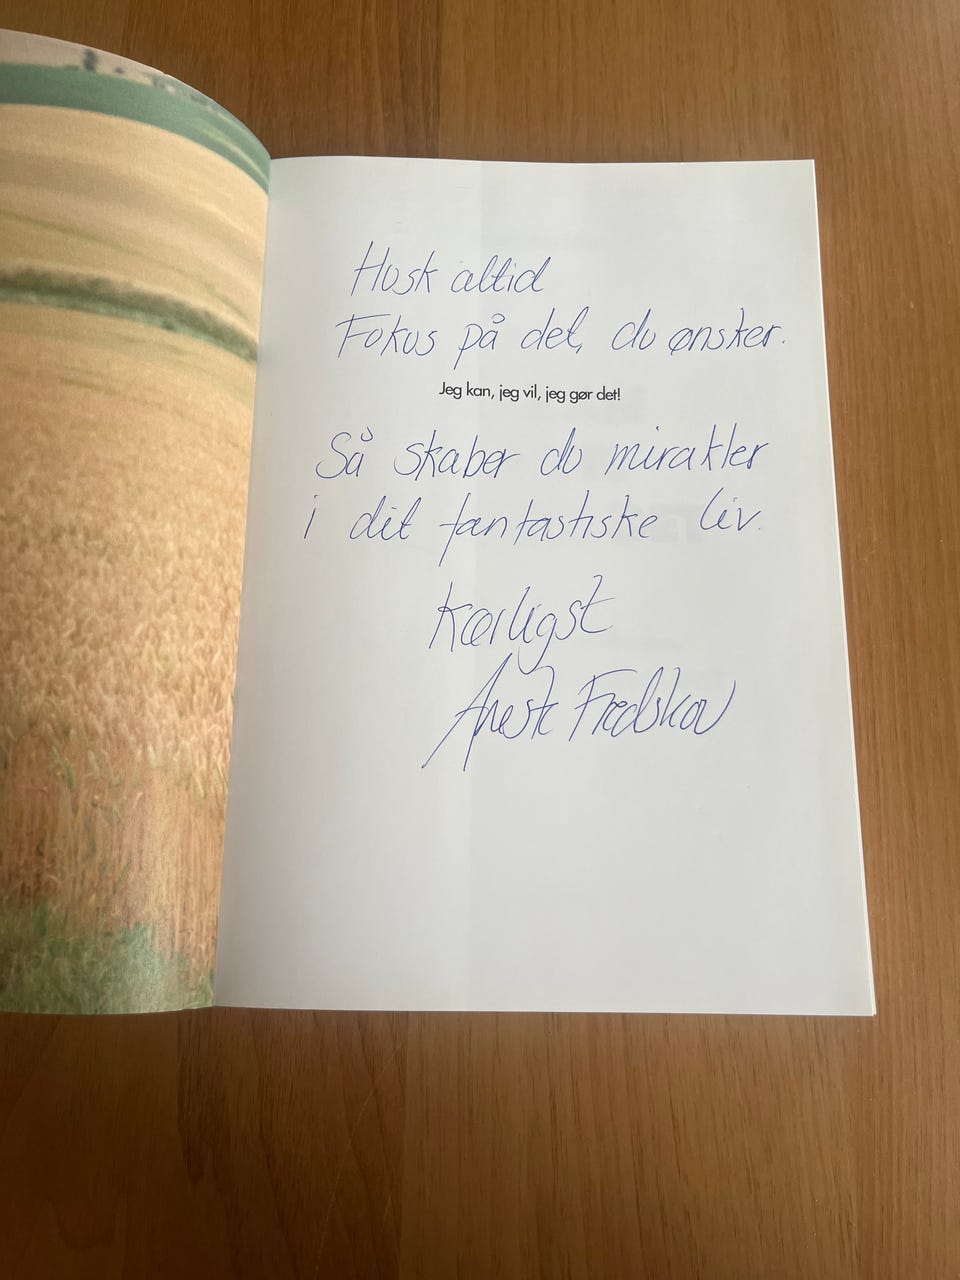 Husk altid
Fokus på det, du ønsker.
Jeg kan, jeg vil, jeg gør det!
Så skaber du mirakler
i dit fantastiske liv.
Kærligst
Fredskov